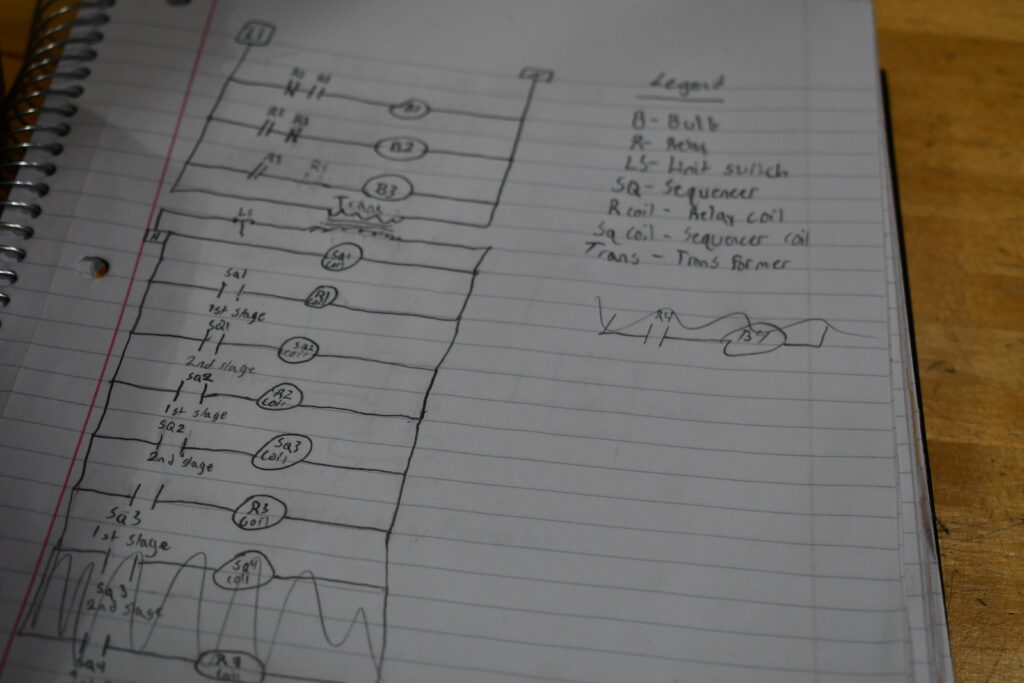 L1
R2 R3
B2
R3
B3
Trans
LS
N
Sq1
coil
Sq1
R1
1st stage
SQ1
Sq2
coil
2nd stage
SQ2
R2
coil
1st stage
SQ2
Sq3
coil
2nd stage
R3
coil
Sq3
1st stage
Sq4
coil
Sq3
2nd stage
R4
coil
SQ4
Legend
B - Bulb
R - Relay
LS - Limit switch
SQ - Sequencer
R coil - Relay coil
Sq coil - Sequencer coil
Trans - Trans former
R4
B4